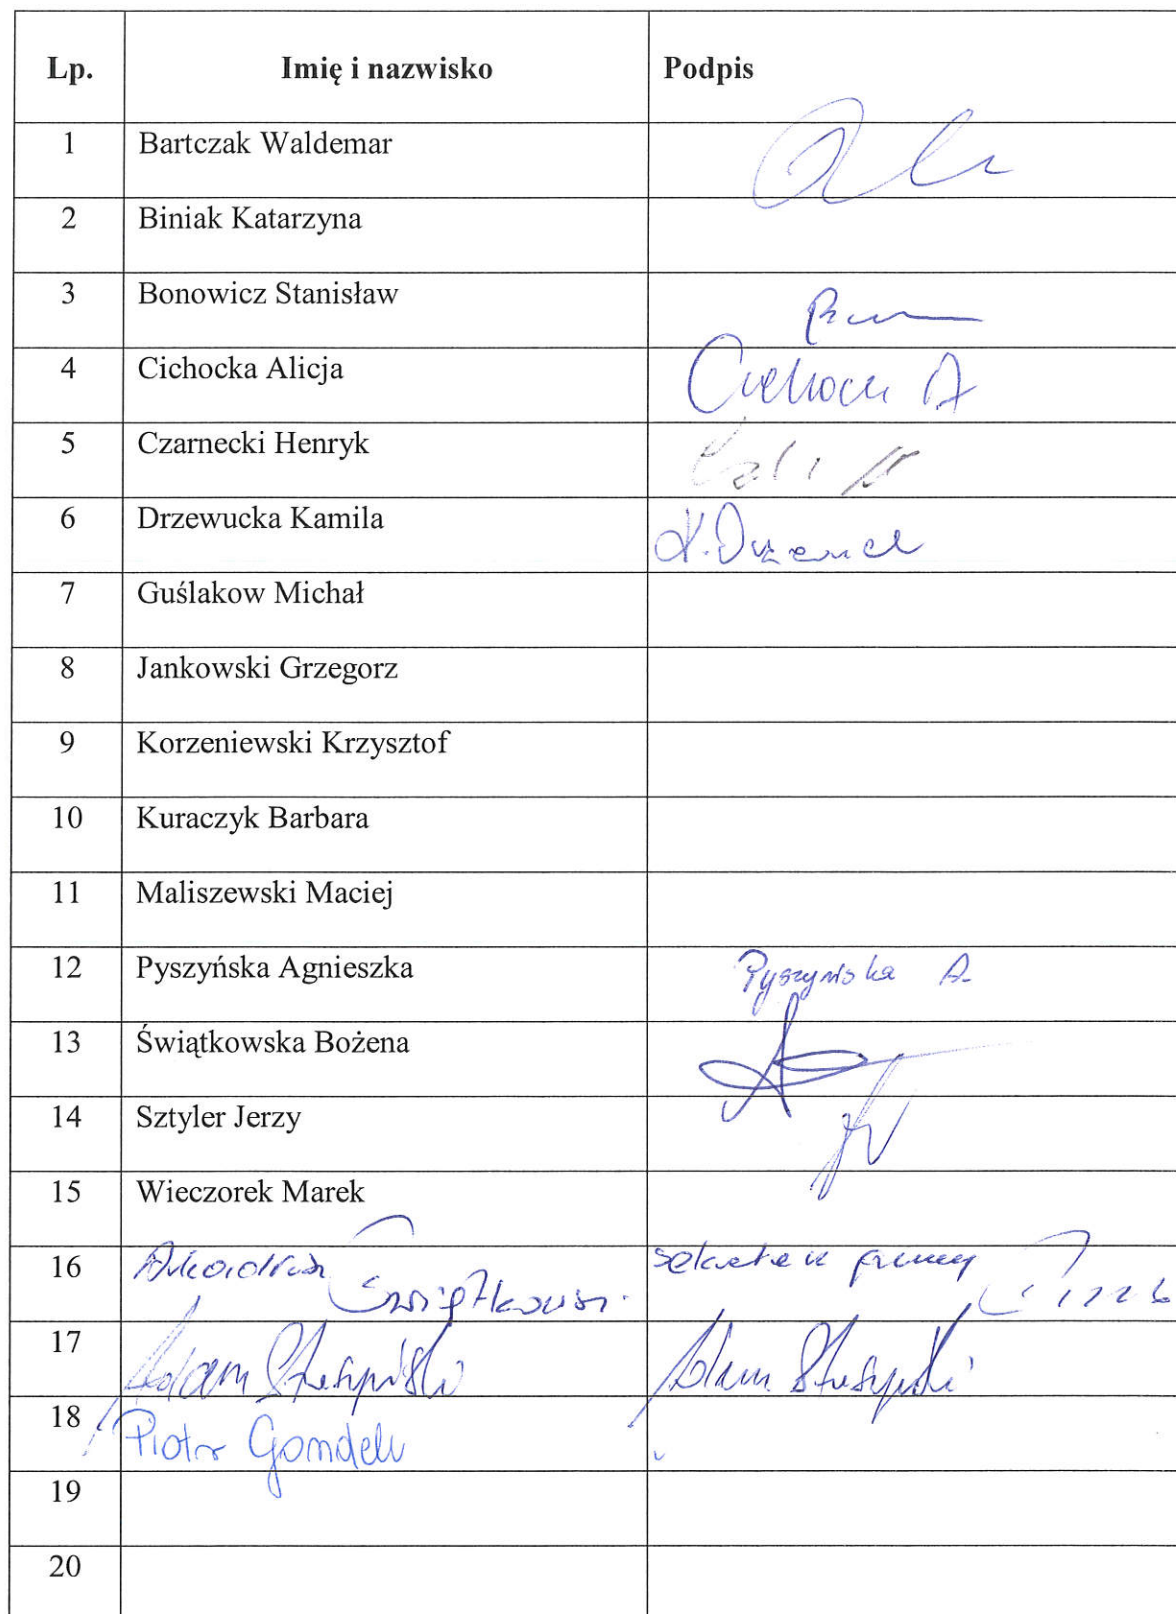 Lp. Imię i nazwisko Podpis
1 Bartczak Waldemar
2 Biniak Katarzyna
3 Bonowicz Stanisław
4 Cichocka Alicja
5 Czarnecki Henryk
6 Drzewucka Kamila
7 Guślakow Michał
8 Jankowski Grzegorz
9 Korzeniewski Krzysztof
10 Kuraczyk Barbara
11 Maliszewski Maciej
12 Pyszyńska Agnieszka Pyszyńska A.
13 Świątkowska Bożena
14 Sztyler Jerzy
15 Wieczorek Marek
16
17 Adam Adam
18 Piotr
19
20